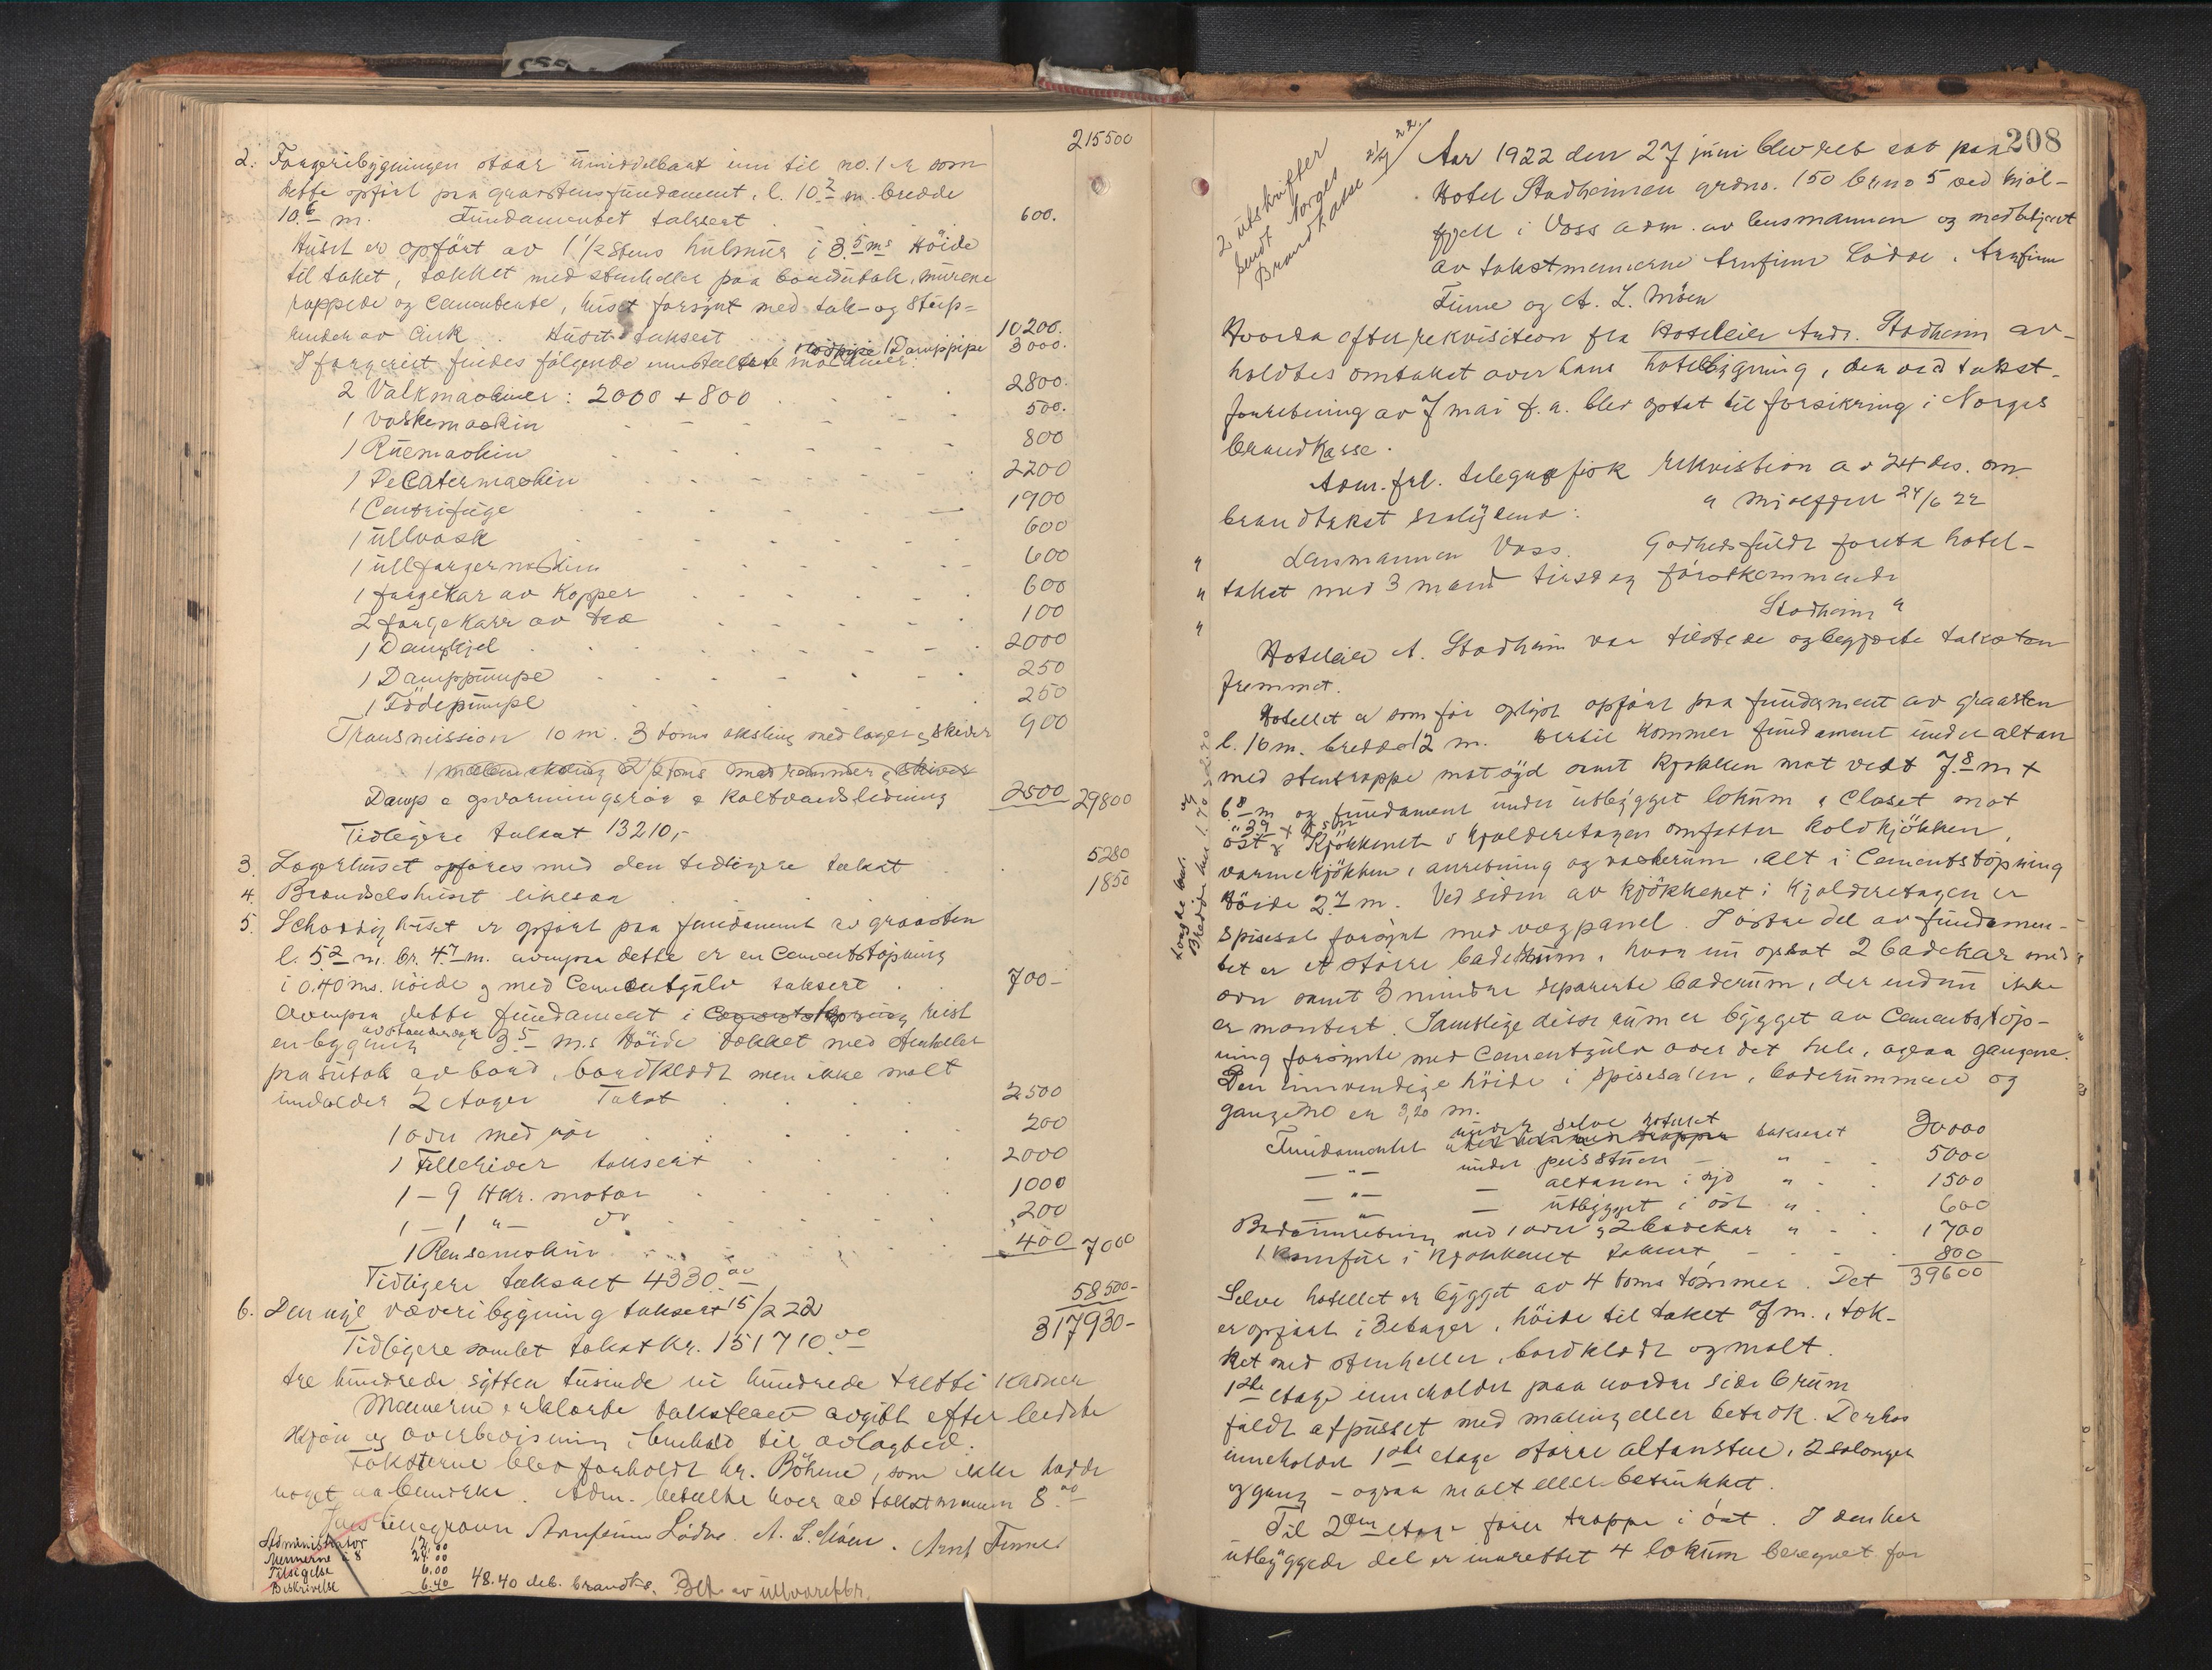 215500
2. Fargeribygningen staar umiddelbart inn til no. 1 er som
dette opført paa graastensfundament, l. 10.7 m. bredde
10.6 m. Fundamentet taksert 600.
Huset er opført av 1 1/2 stens hulmur i 3.5 ms høide
til taket, tækket med stenheller paa bordutak, murene
rappede og Cementerte, huset forsynt med tak- og
render av Zink. Huset taksert 10200.
1 Damppipe 3000.
I fargeriet findes følgende maskiner:
2 Valkmaskiner: 2000 + 800 2800.
1 vaskemaskin 500.
1 Ruemaskin 800
1 Decatermaskin 2200
1 Centrifuge 1900
1 ullvask 600
1 ullfargermaskin 600
1 fargekar av Kopper 600
2 fargekarr av træ 100
1 Dampkjel 2000
1 Damppumpe 250
1 Fødepumpe 250
Transmission 10 m. 3 toms aksling med lager & skiver 900
Damp & opvarmingsrør & Koltvandsledning 2500 29800
Tidligere takst 13210,-
3. Lagerhuset opføres med den tidligere takst 5280
4. Brændselshuset likesaa 1850
5. Schoddyhuset er opført paa fundament av graasten
l. 5.2 m. br. 4.7 m. ovenpaa dette er en Cementstøpning
i 0.40 ms. høide og med Cementgulv taksert 700-
Ovenpaa dette fundament i reist
en bygning 3.5 m.s høide tækket med stenheller
paa sutak av bord, bordklædt men ikke malt
indholder 2 etager Takst 2500
1 ovn med rør 200
1 Filleriver taksert 2000
1 – 9 Hkr. motor 1000
1 – 1 " – do 200
1 Rensemaskin 400 7000
Tidligere taksert 4330.00
6. Den nye væveribygning taksert 15/2 22 58500-
317930-
Tidligere samlet takst kr. 151710.00
tre hundrede sytten tusinde ni hundrede tretti kroner
Mennerne erklærte taksten avgitt efter bedste
skjøn og overbevisning i henhold til avlagt ed.
Taksterne blev foreholdt hr. Böhme, som ikke hadde
noget at bemerke. Adm. betalte hver av takstmennen 8.00
Arnfinn Lødve. A. L. Möen. Arnf Finne
Administrator 12.00
Mennerne á 8 24.00
Tilsigelse 6.00
Beskrivelse 6.40 48.40 deb. brandks. Bet. av ullvarefbr.
208
2 utskrifter
sendt Norges
Brandkasse
Aar 1922 den 27 juni blev ret sat paa
Hotel Stadheimen grdno. 150 brno 5 ved Mjøl-
fjell i Voss adm. av lensmannen og medbetjent
av takstmennerne Arnfinn Lødve, Arnfinn
Finne og A. L. Möen
Hvorda efter rekvisition fra Hoteleier Andr. Stadheim av-
holdtes omtakst over hans hotelbygning, den ved takst-
forretning av 7 mai f. a. blev optat til forsikring i Norges
brandkasse.
Adm. frl. telegrafisk rekvisition av 24 ds. om
brandtakst saalydende: " Mjølfjell 24/6 22
" Lensmannen Voss. Godhedsfuldt foreta hotel-
" takst med 3 mand tirsdag førstkommende
" Stadheim "
Hoteleier A. Stadheim var tilstede og begjærte taksten
fremmet.
Hotellet er som før oplyst opført paa fundament av graasten
l. 16 m. bredde 12 m. Hertil kommer fundament under altan
med stentrappe mot syd samt kjøkken mot vest 7.8 m x
6.8 m og fundament under utbygget lokum & Closet mot
øst. Kjøkkenet i kjelderetagen omfatter koldkjøkken,
varmekjøkken, anretning og vaskerum, alt i Cementstøpning
høide 2.7 m. Ved siden av kjøkkenet i Kjelderetagen er
spisesal forsynt med vægpanel. I østre del av fundamen-
tet er et større baderum, hvor nu opsat 2 badekar med
ovn samt 3 mindre separerte baderum, der endnu ikke
er montert. Samtlige disse rum er bygget av Cementstøp-
ning forsynte med Cementgulv over det hele, ogsaa gangene.
Den innvendige høide i spisesalen, baderummene og
gangene er 3,20 m.
Fundamentet under selve hotellet taksert 30000
– " – under peisstuen – " 5000
– " – – altanen i syd " 1500
– " – – utbygget i øst " 600
Badeinnretning med 1 ovn & 2 badekar " 1700
1 komfur i Kjøkkenet takst 800
Selve hotellet er bygget av 4 toms tømmer. Det 39600
er opført i 3 etager, høide til taket 9 m., tæk-
ket med stenheller, bordklædt og malt.
1ste etage inneholder paa nordre side 6 rum
fuldt afpusset med maling eller betræk. Derhos
inneholder 1ste etage større altanstue, 2 salonger
og gang – ogsaa malt eller betrukket.
Til 2den etage fører trappe i øst. I den her
utbyggede del er innrettet 4 lokum beregnet for